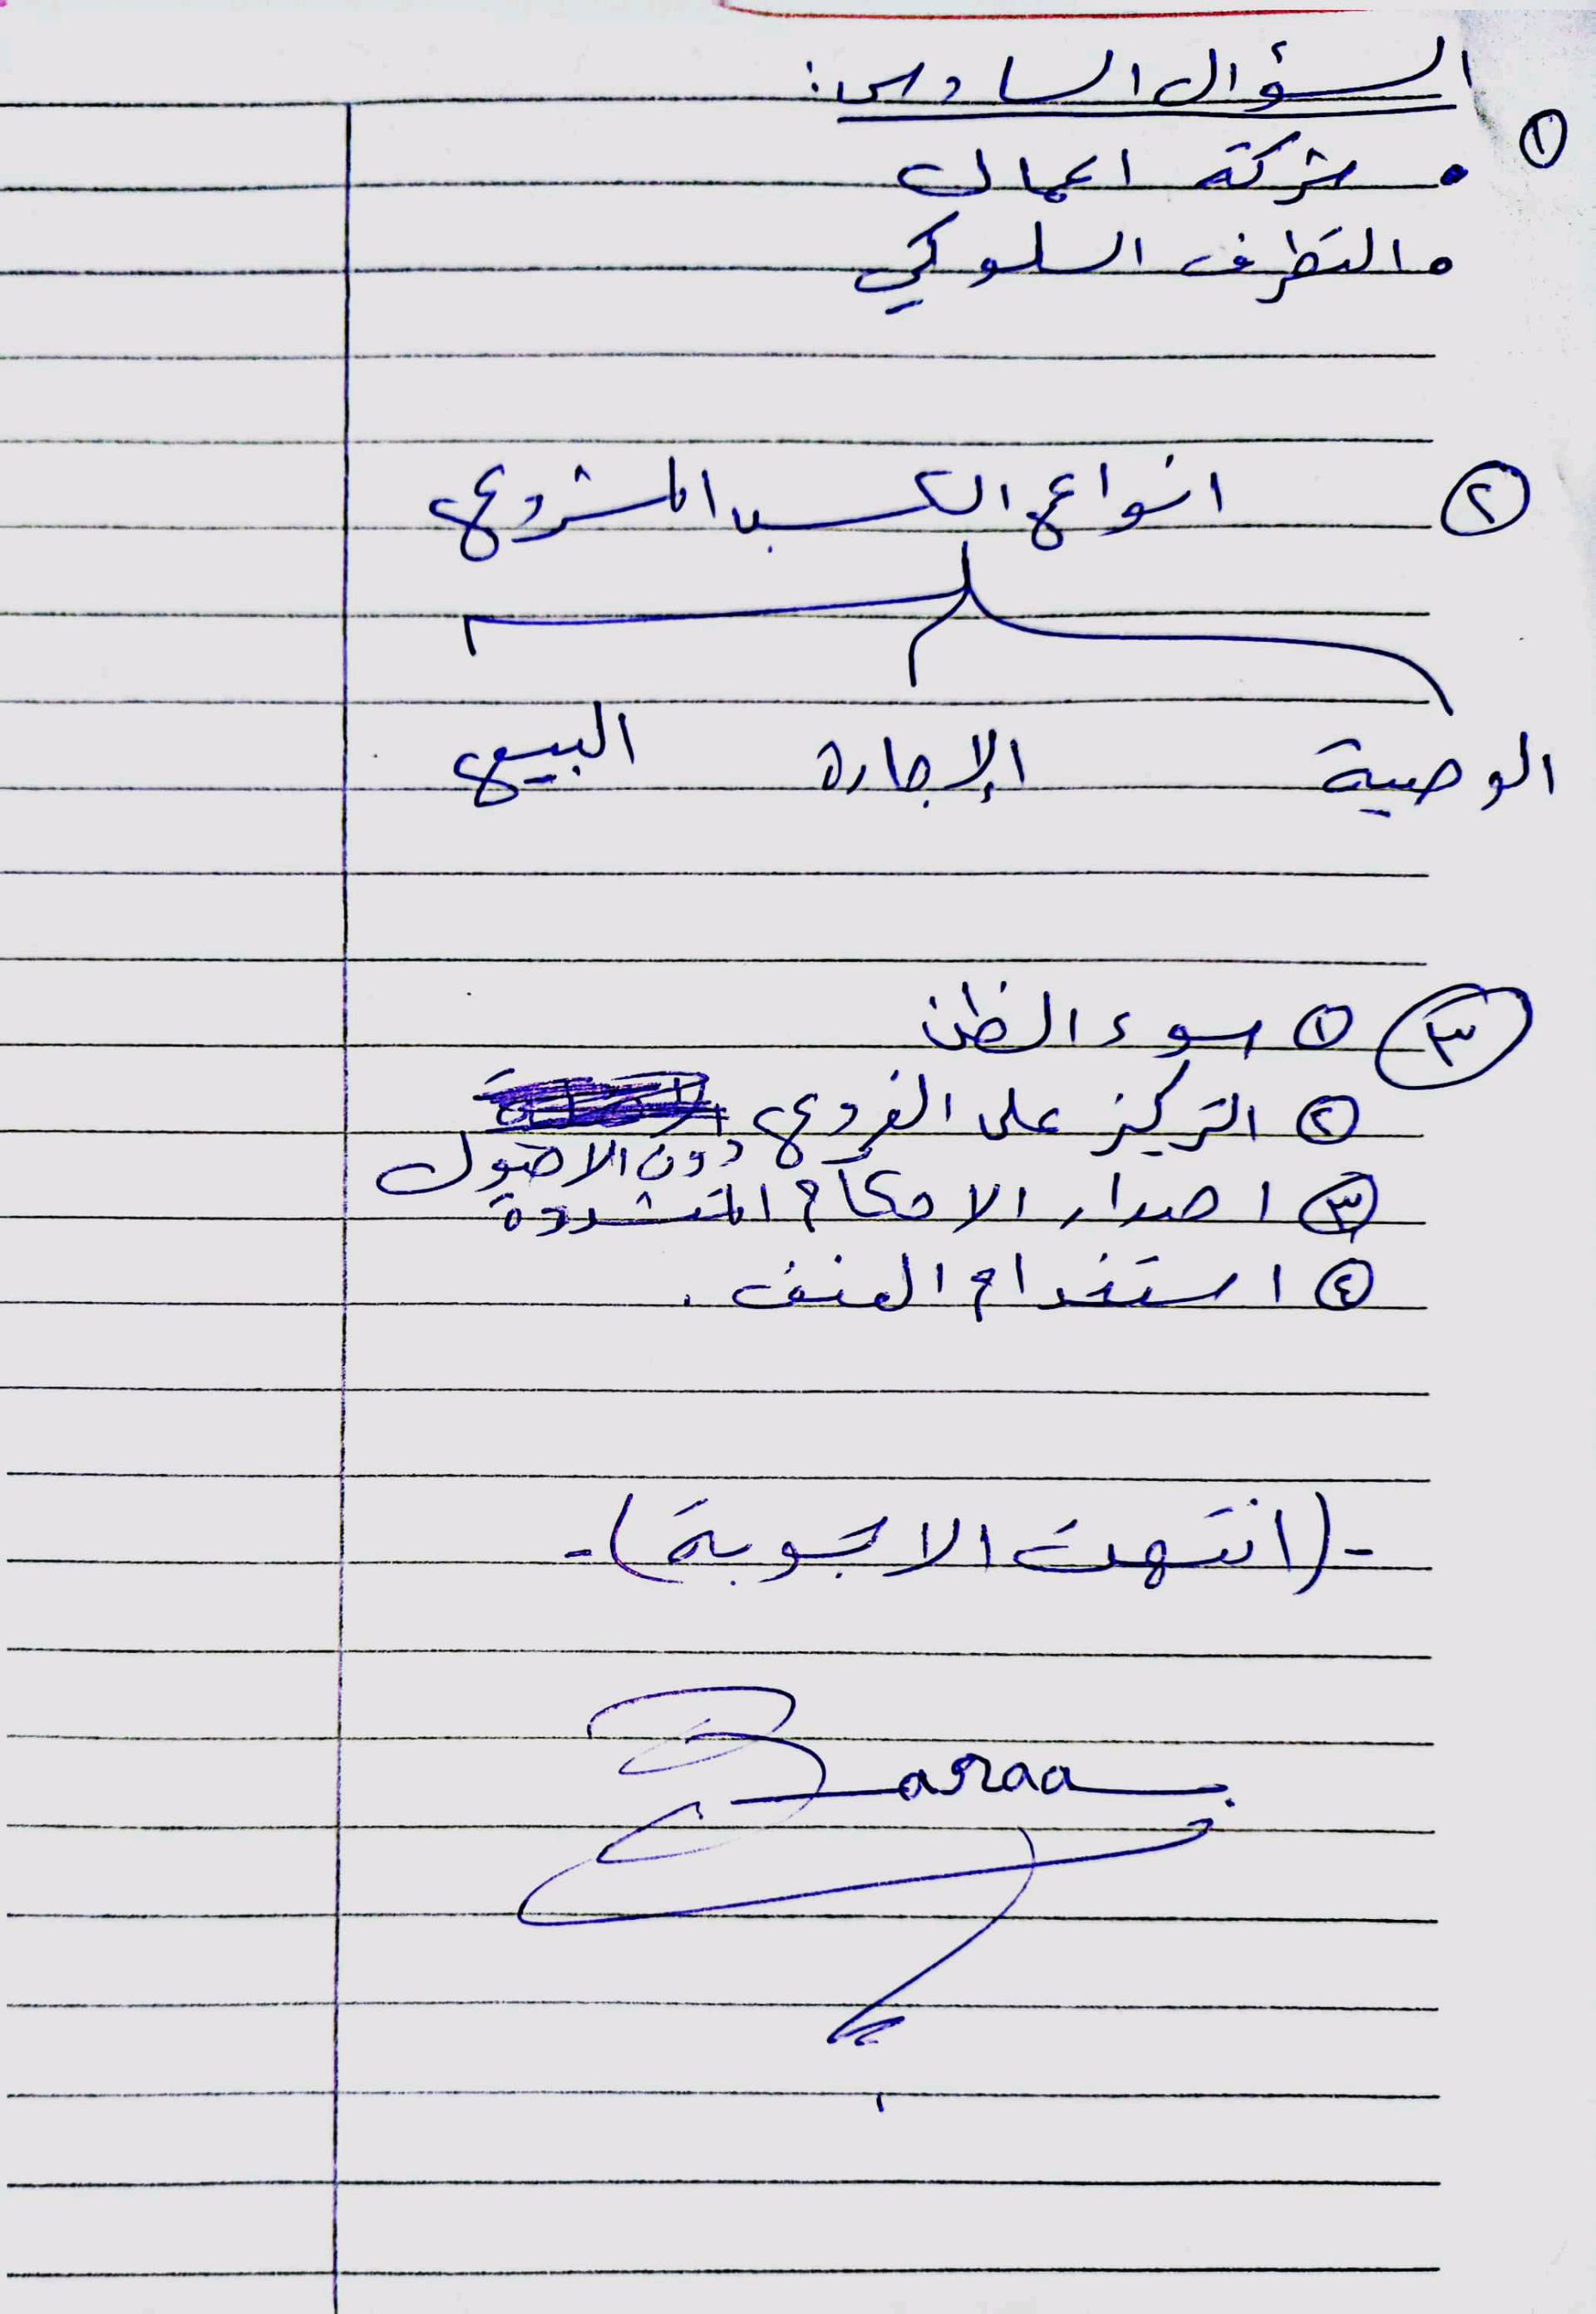 السؤال السادس:
①
• شركة اعمال
• التطرف السلوكي
② انواع الكسب المشروع
الوصية الإجارة البيع
③ ① سوء الظن
② التركيز على الفروع دون الاصول
③ اصدار الاحكام المتشددة
④ استخدام العنف.
-(انتهت الاجوبة)-